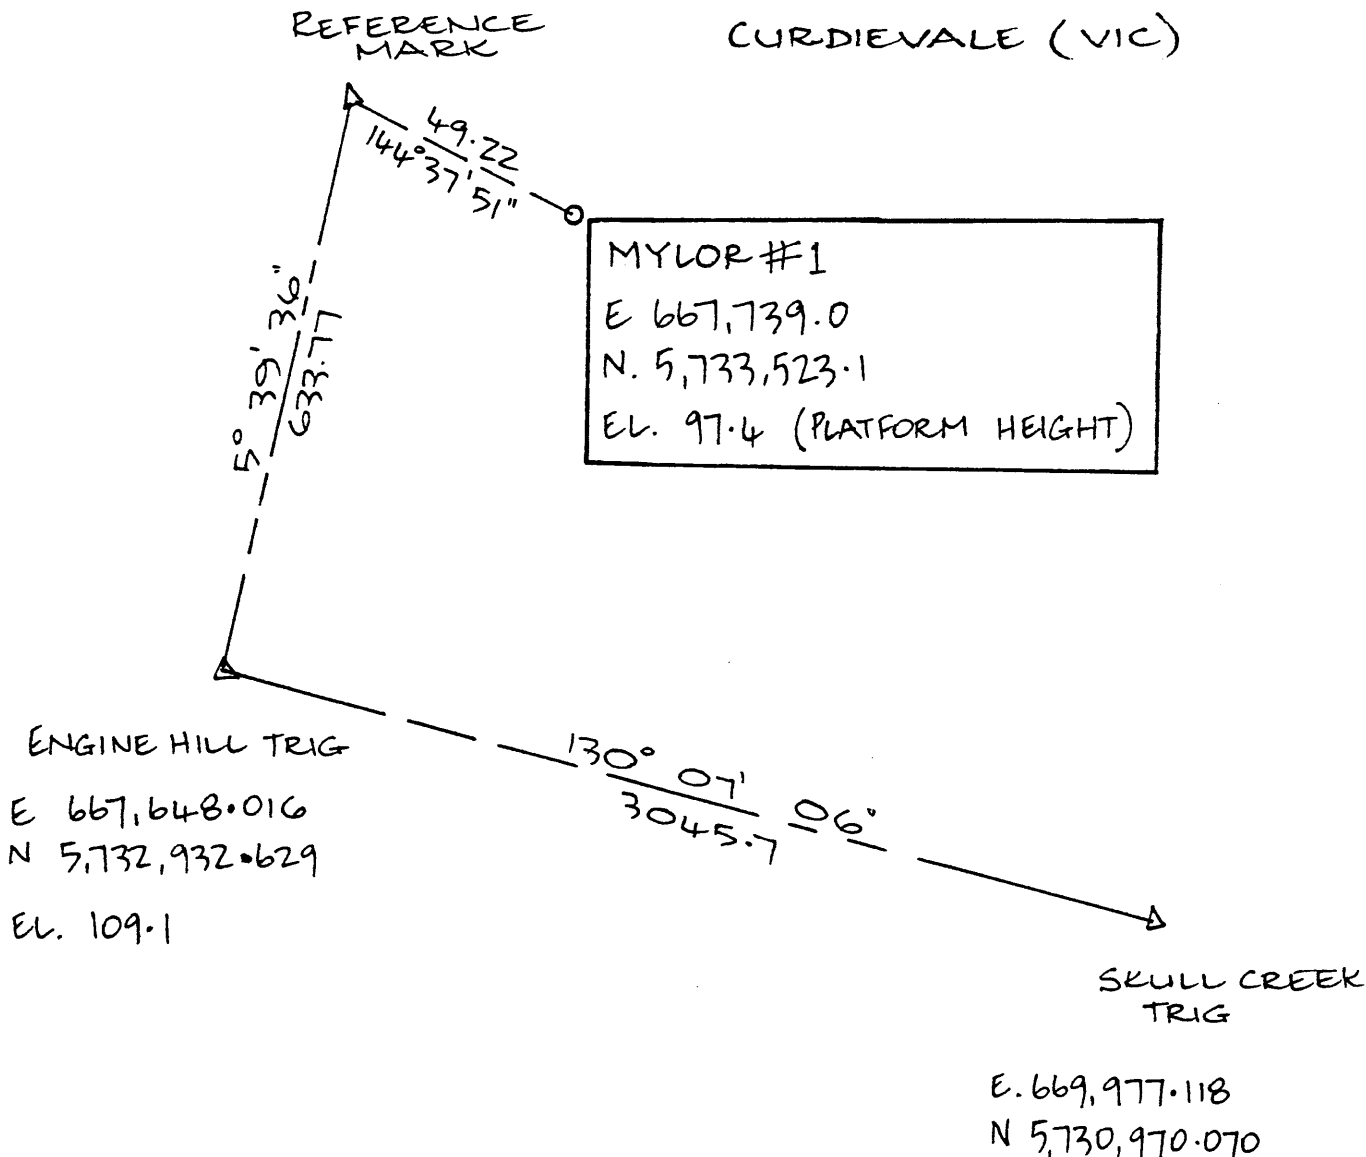 REFERENCE
MARK
CURDIEVALE (VIC)
49.22
144°37'51"
MYLOR #1
E 667,739.0
N. 5,733,523.1
EL. 97.4 (PLATFORM HEIGHT)
5° 39' 36"
633.77
ENGINE HILL TRIG
E 667,648.016
N 5,732,932.629
EL. 109.1
130° 07' 06"
3045.7
SKULL CREEK
TRIG
E. 669,977.118
N 5,730,970.070